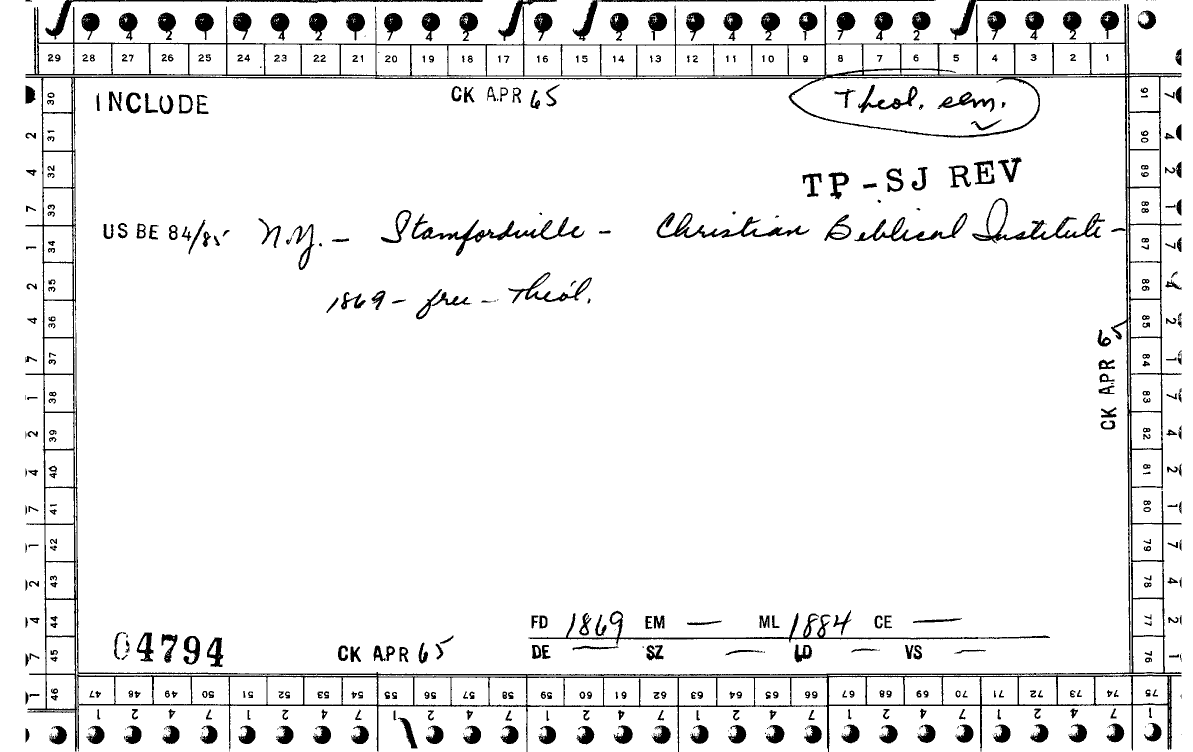 7 4 2 1 7 4 2 1 7 4 2 1 7 4 2 1 7 4 2 1 7 4 2 1 7 4 2 1
29 28 27 26 25 24 23 22 21 20 19 18 17 16 15 14 13 12 11 10 9 8 7 6 5 4 3 2 1
INCLUDE CK APR 65 Theol. sem.
TP-SJ REV
US BE 84/85 N.Y. - Stamfordville - Christian Biblical Institute -
1869 - free - Theol.
CK APR 65
FD 1869 EM — ML 1884 CE —
04794 CK APR 65 DE — SZ — LD — VS —
30 31 32 33 34 35 36 37 38 39 40 41 42 43 44 45 46
2 4 7 1 2 4 7 1 2 4 7 1 2 4 7 1
91 90 89 88 87 86 85 84 83 82 81 80 79 78 77 76
7 4 2 1 7 4 2 1 7 4 2 1 7 4 2 1
47 48 49 50 51 52 53 54 55 56 57 58 59 60 61 62 63 64 65 66 67 68 69 70 71 72 73 74 75
1 2 4 7 1 2 4 7 1 2 4 7 1 2 4 7 1 2 4 7 1 2 4 7 1 2 4 7 1